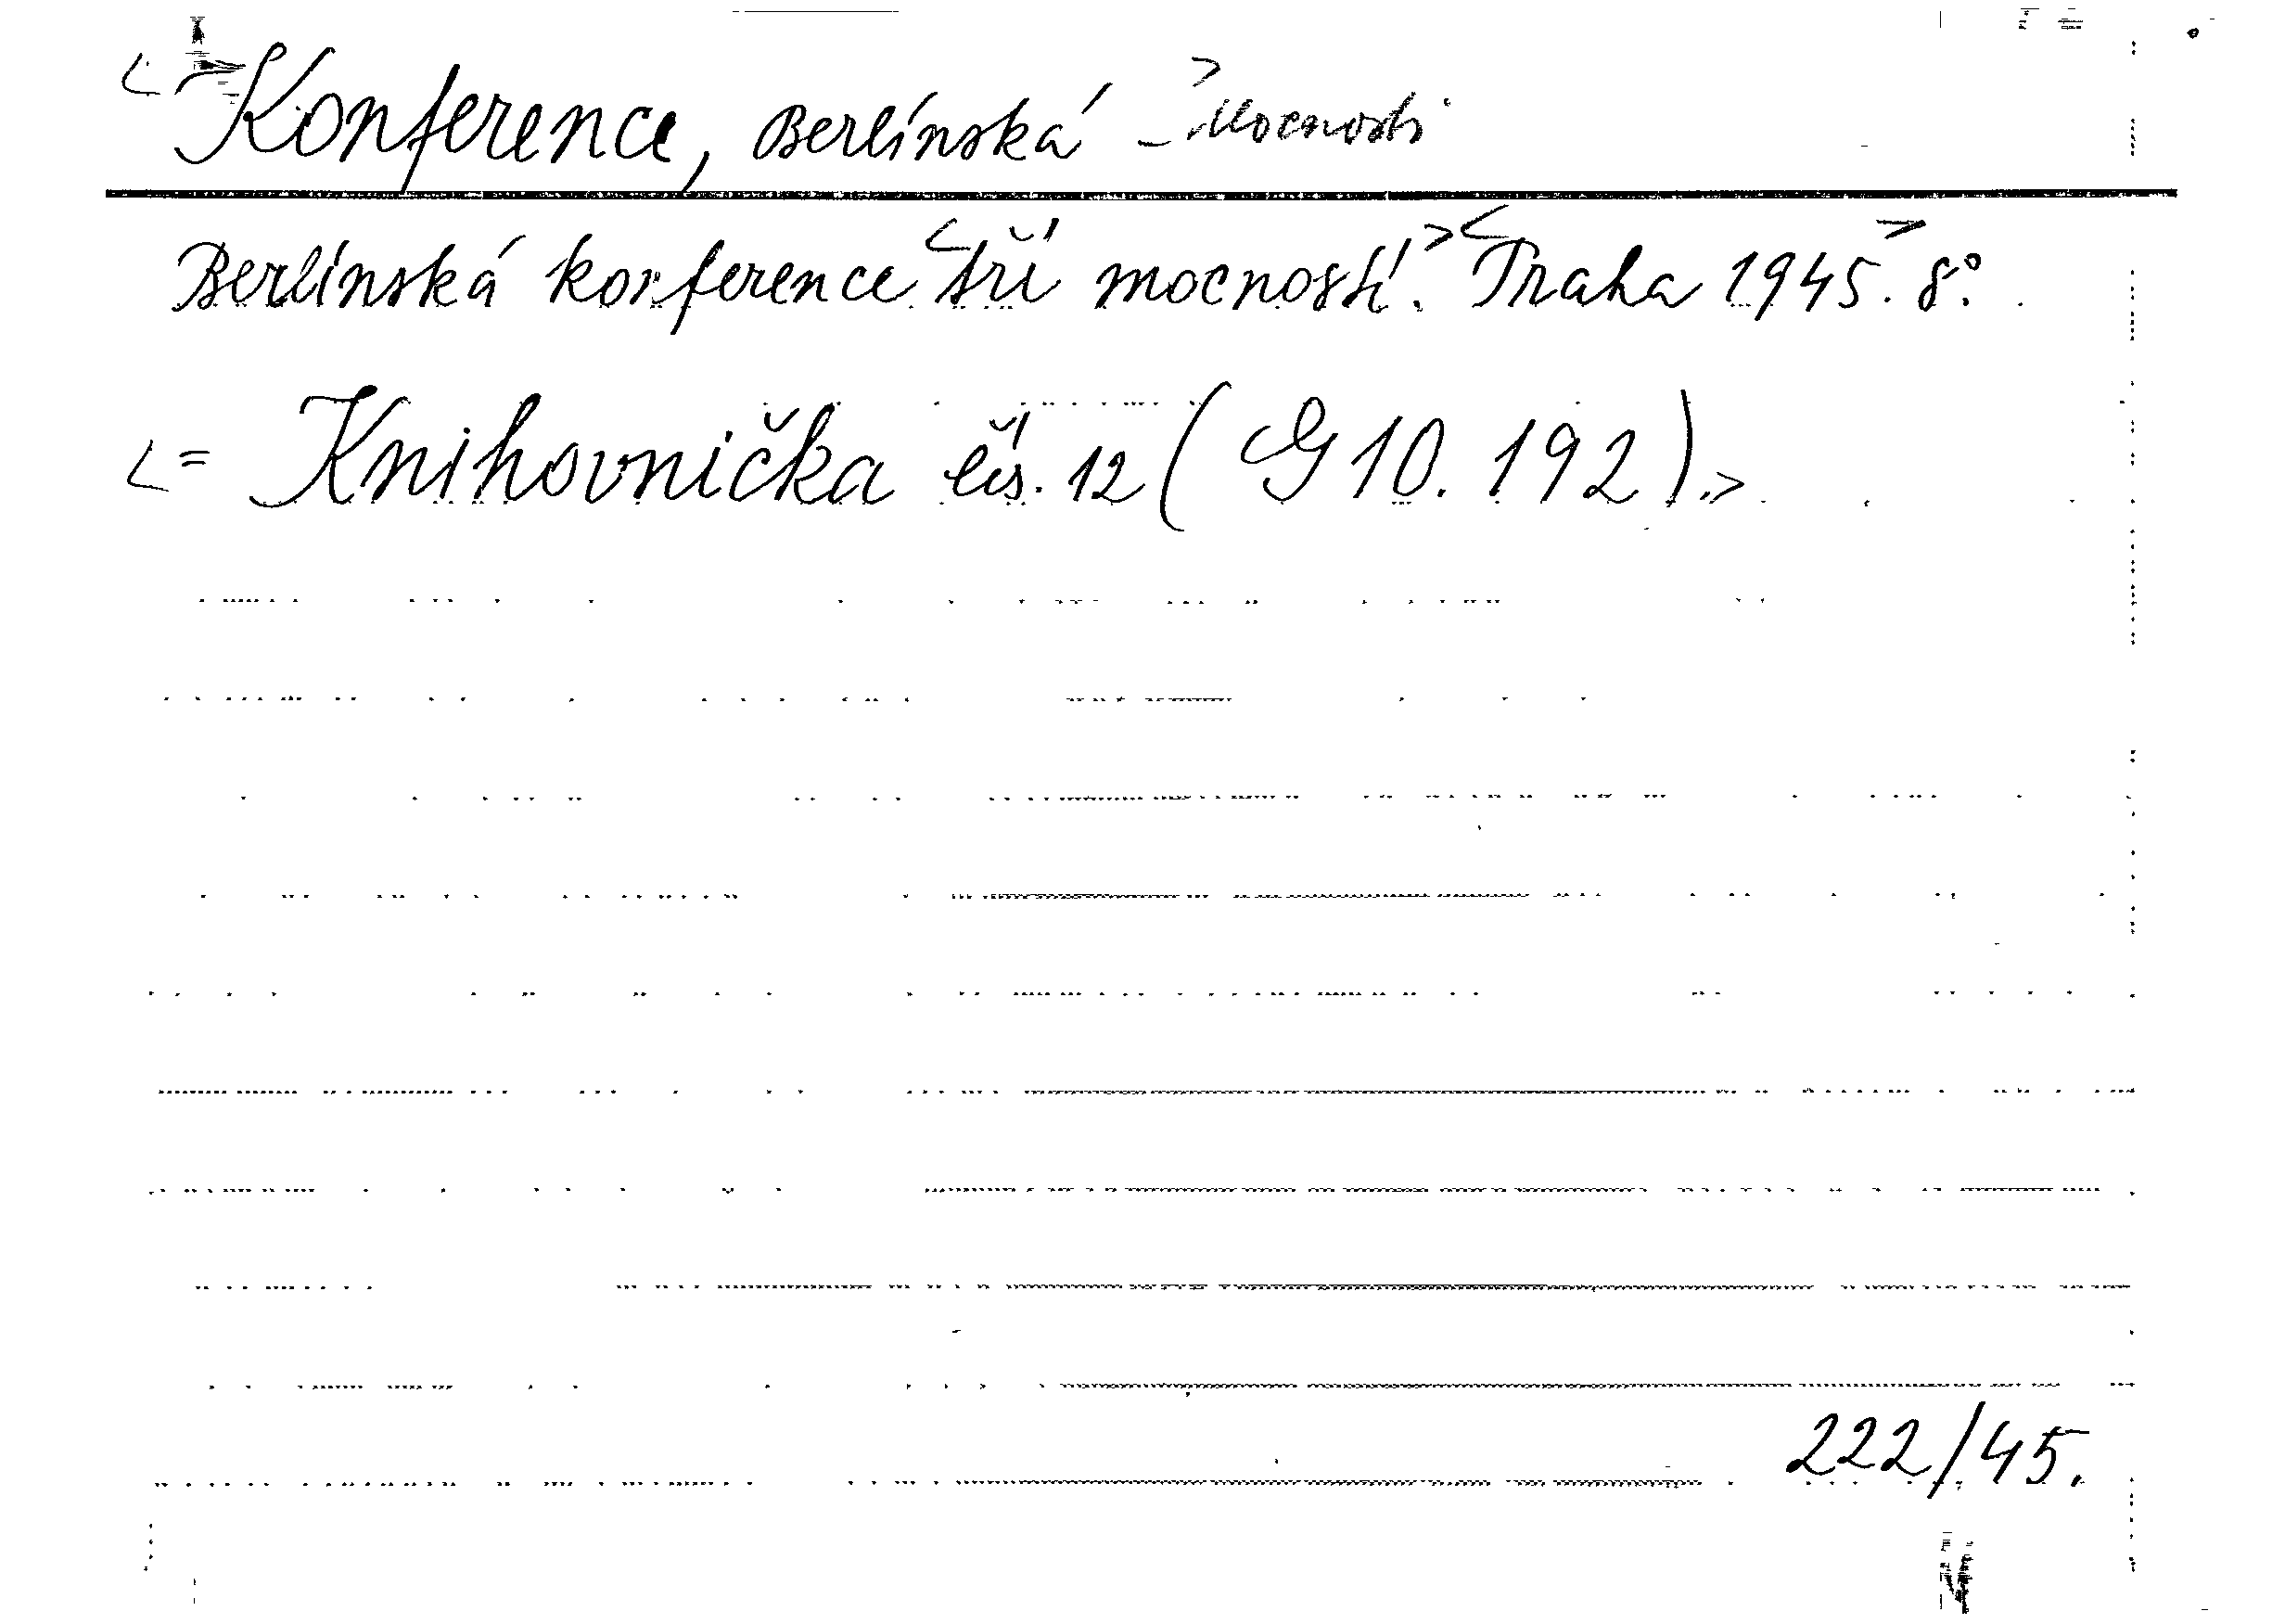 <Konference, Berlínská> - Mocnosti
Berlínská konference <tří mocností.> <Praha 1945.> 8°.
<= Knihovnička čís. 12 (G 10.192).>
222/45.